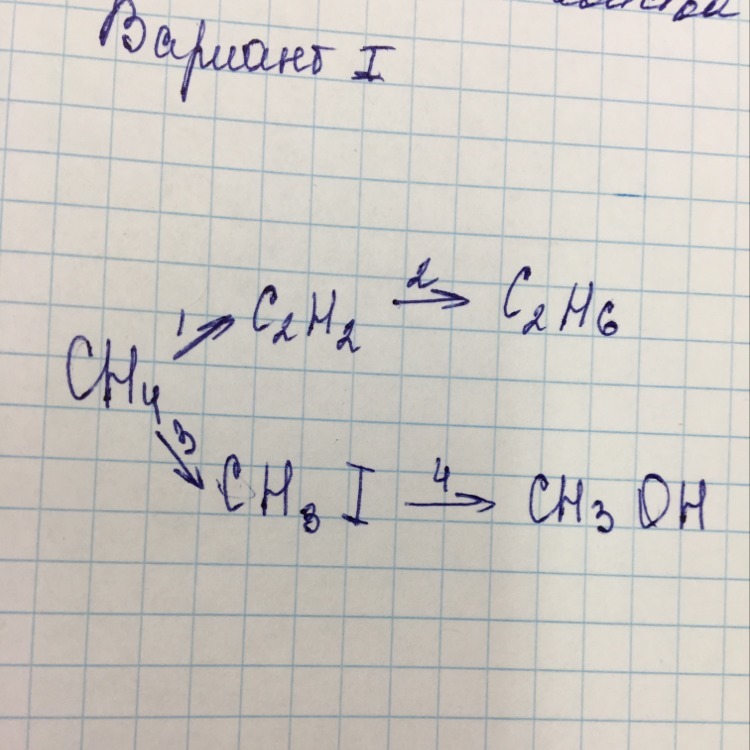 Вариант I
1 C2H2 2→ C2H6
CH4
3 CH3 I 4→ CH3 OH